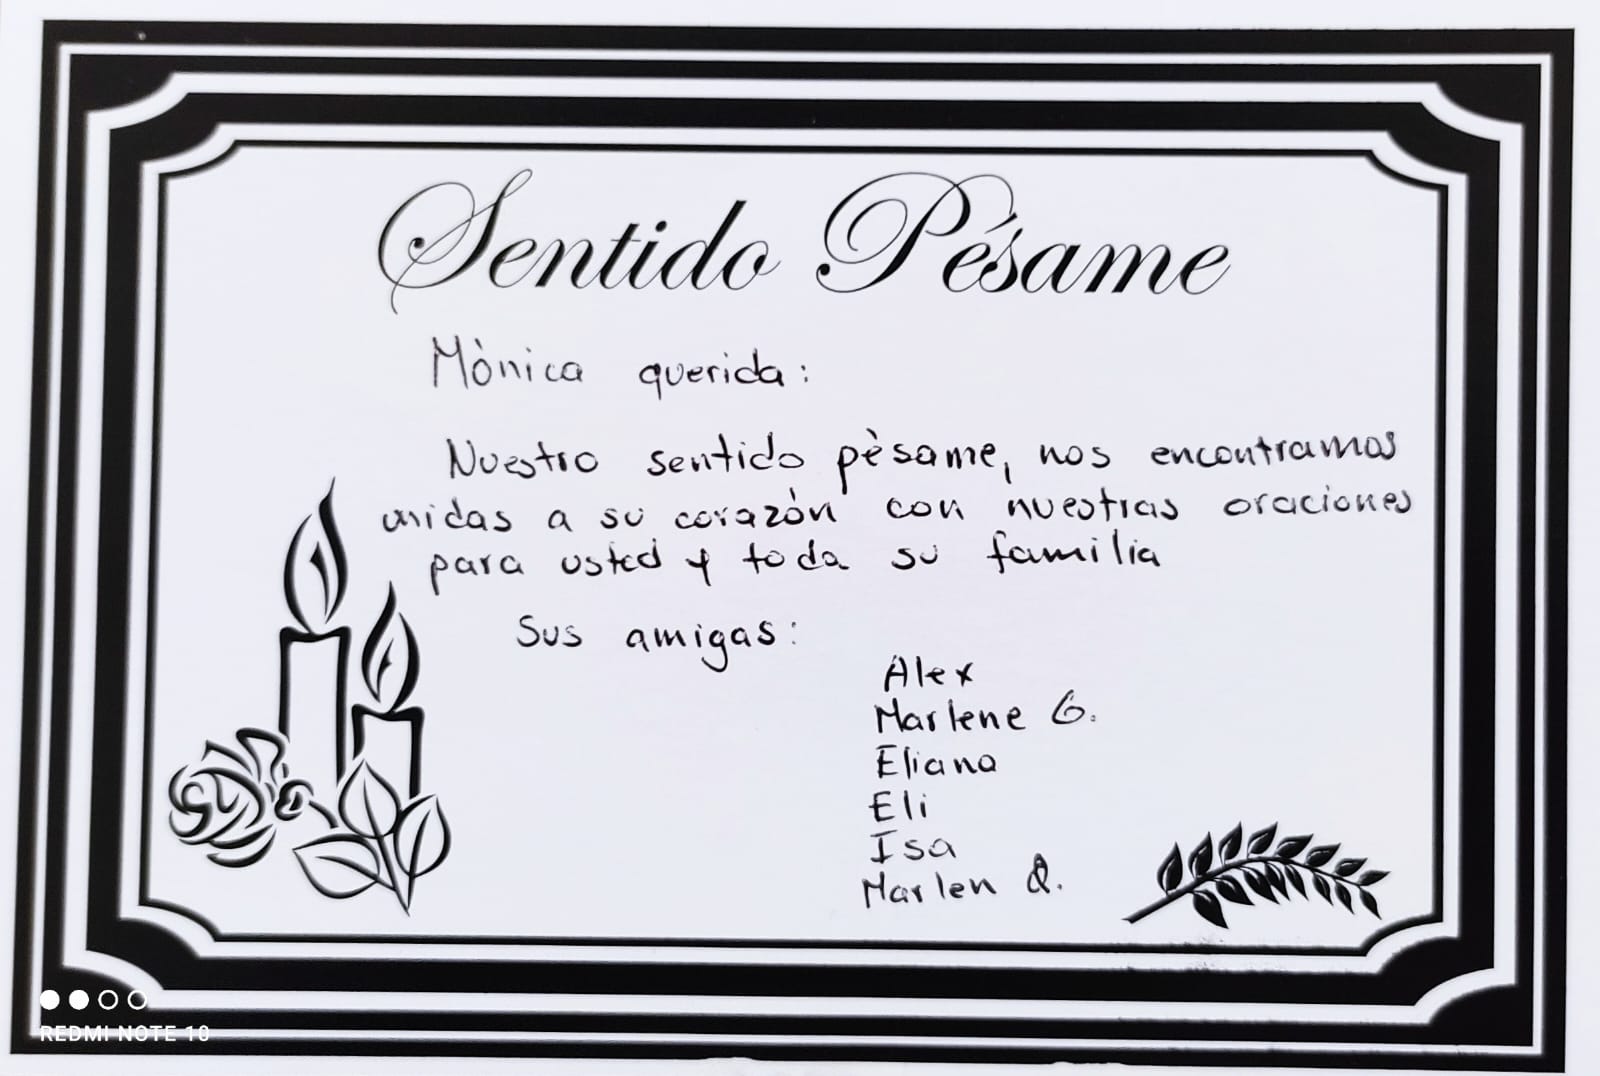 Sentido Pésame
Mònica querida:
Nuestro sentido pèsame, nos encontramos
unidas a su corazòn con nuestras oraciones
para usted y toda su familia
Sus amigas:
Alex
Marlene G.
Eliana
Eli
Isa
Marlen Q.
REDMI NOTE 10